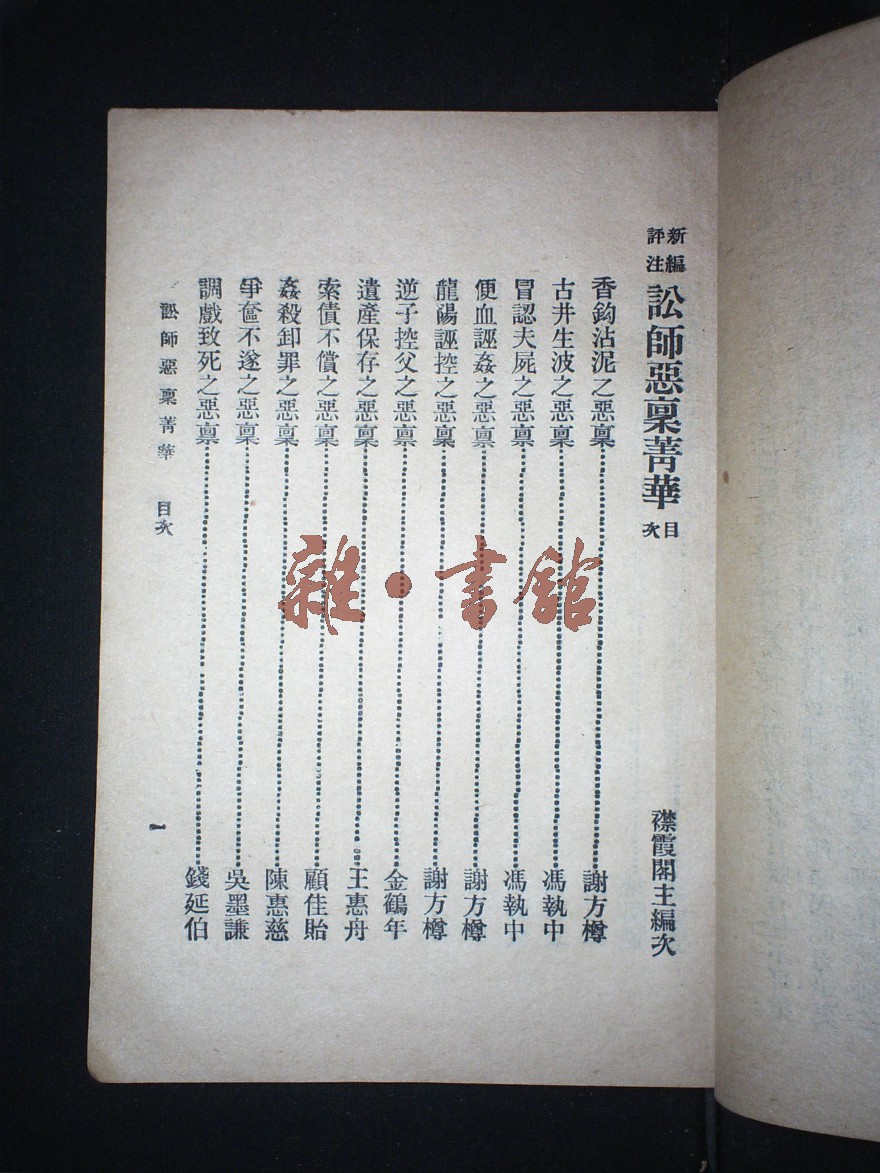 新編評注訟師惡稟菁華目次
襟霞閣主編次
香鈎沾泥之惡稟 謝方樽
古井生波之惡稟 馮執中
冒認夫屍之惡稟 馮執中
便血誣姦之惡稟 謝方樽
龍陽誣控之惡稟 謝方樽
逆子控父之惡稟 金鶴年
遺產保存之惡稟 王惠舟
索債不償之惡稟 顧佳貽
姦殺卸罪之惡稟 陳惠慈
爭奩不遂之惡稟 吳墨謙
調戲致死之惡稟 錢延伯
訟師惡稟菁華 目次 一
雜·書館